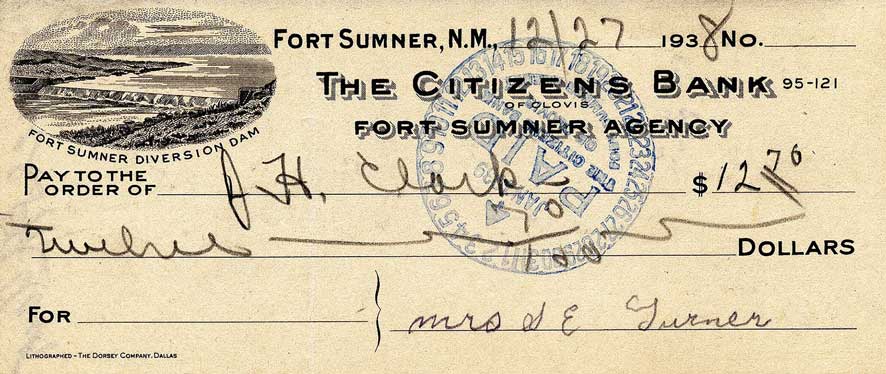 FORT SUMNER, N.M., 12/27 1938 NO.
THE CITIZENS BANK 95-121
OF CLOVIS
FORT SUMNER AGENCY
FORT SUMNER DIVERSION DAM
PAY TO THE ORDER OF J. H. Clark $ 12 70
Twelve 70 100 DOLLARS
FOR Mrs S E Turner
LITHOGRAPHED - THE DORSEY COMPANY, DALLAS
PAID
JAN